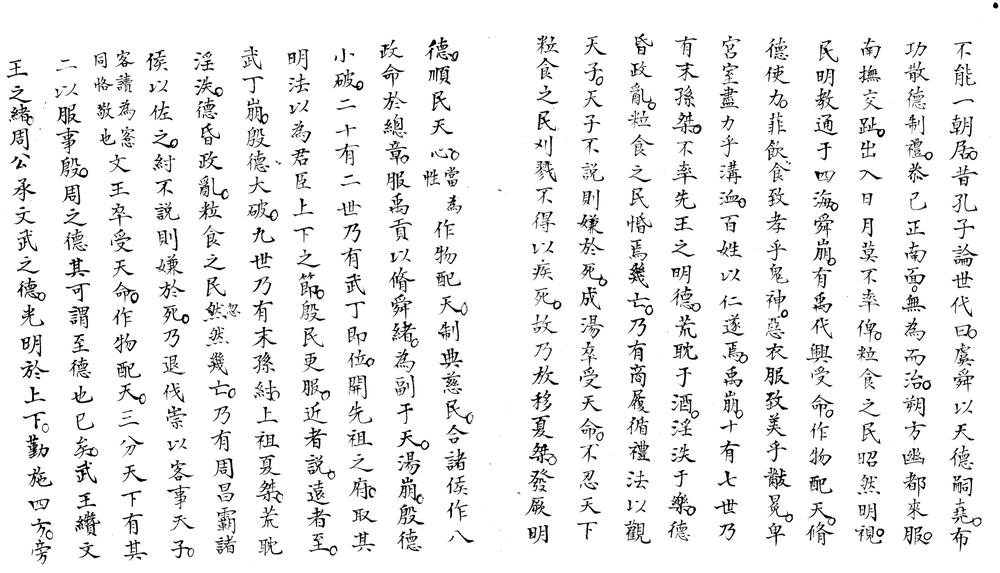 不能一朝居。昔孔子論世代曰。虞舜以天德嗣堯。布
功散德制禮。恭己正南面。無為而治。朔方幽都來服。
南撫交趾。出入日月莫不率俾。粒食之民昭然明視。
民明教通于四海。舜崩。有禹代興受命。作物配天。脩
德使力。菲飲食致孝乎鬼神。惡衣服致美乎黻冕。卑
宮室盡力乎溝洫。百姓以仁遂焉。禹崩。十有七世乃
有末孫桀。不率先王之明德。荒耽于酒。淫泆于樂。德
昏政亂。粒食之民惛焉幾亡。乃有商履循禮法以觀
天子。天子不說則嫌於死。成湯卒受天命。不忍天下
粒食之民刈戮不得以疾死。故乃放移夏桀。發厥明
德。順民天心。心當為性作物配天。制典慈民。合諸侯作八
政命於總章。服禹貢以脩舜緒。為副于天。湯崩。殷德
小破。二十有二世乃有武丁即位。開先祖之府。取其
明法以為君臣上下之節。殷民更服。近者說。遠者至。
武丁崩。殷德大破。九世乃有末孫紂。上祖夏桀。荒耽
淫泆。德昏政亂。粒食之民忽然然幾亡。乃有周昌霸諸
侯以佐之。紂不說則嫌於死。乃退伐崇以客事天子。
客讀為愙同恪敬也文王卒受天命。作物配天。三分天下有其
二以服事殷。周之德其可謂至德也已矣。武王纘文
王之緒。周公承文武之德。光明於上下。勤施四方。旁